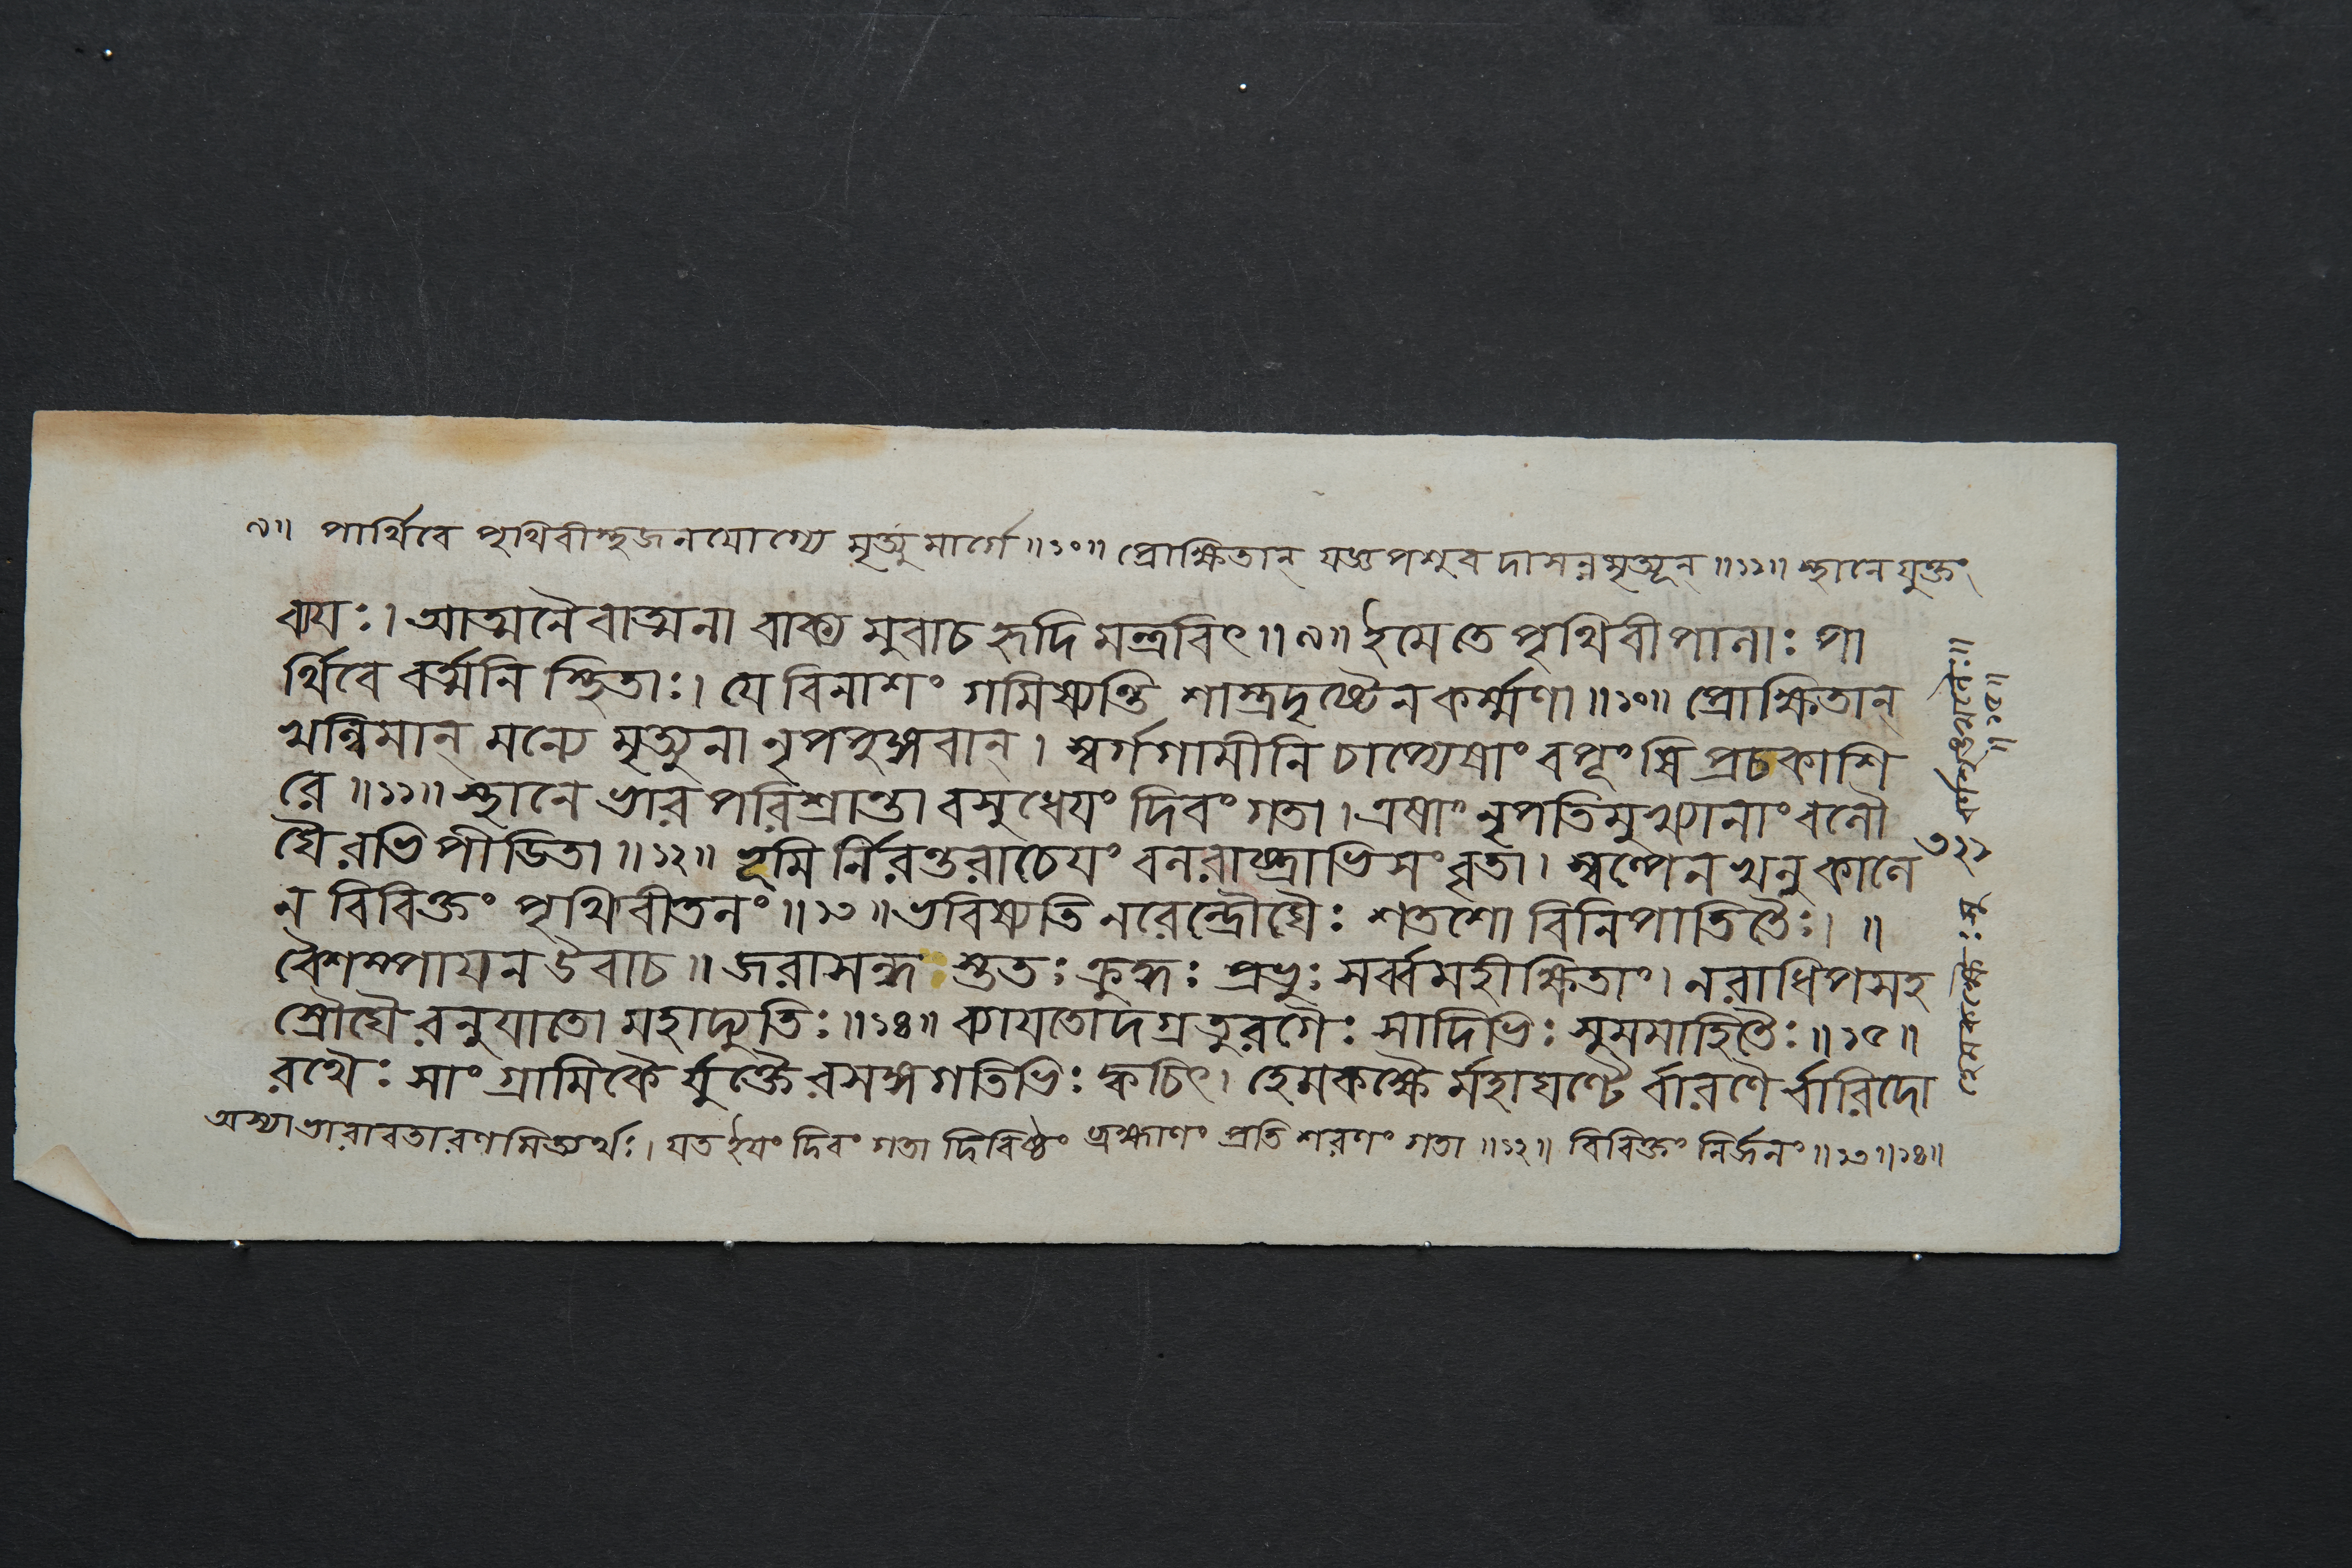 ৯॥ পার্থিবে পৃথিবীস্থজনযোগ্যে মৃত্যুমার্গে ॥১০॥ প্রোক্ষিতান্ যজ্ঞপশুবদাসন্নমৃত্যূন্ ॥১১॥ স্থানে যুক্তং
ব্যযঃ। আত্মনৈবাত্মনা বাক্যমুবাচ হৃদি মন্ত্রবিৎ॥৯॥ ইমে তে পৃথিবীপালাঃ পা
র্থিবে বর্ত্মনি স্থিতাঃ। যে বিনাশং গমিষ্যন্তি শাস্ত্রদৃষ্টেন কর্ম্মণা॥১০॥ প্রোক্ষিতান্
খল্বিমান্ মন্যে মৃত্যুনা নৃপপুঙ্গবান্। স্বর্গগামীনি চাপ্যেষাং বপূংষি প্রচকাশি
রে॥১১॥ স্থানে ভারপরিশ্রান্তা বসুধেযং দিবং গতা। এষাং নৃপতিমুখ্যানাং বলৌ
ঘৈরভিপীডিতা॥১২॥ ভূমির্নিরন্তরা চেযং বলরাষ্ট্রাভিসংবৃতা। স্বল্পেন খলু কালে
ন বিবিক্তং পৃথিবীতলং॥১৩॥ ভবিষ্যতি নরেন্দ্রৌঘৈঃ শতশো বিনিপাতিতৈঃ।॥
বৈশম্পাযন উবাচ॥ জরাসন্ধঃ স্তুতঃ ক্রুদ্ধঃ প্রভুঃ সর্ব্বমহীক্ষিতাং। নরাধিপসহ
স্রৌঘৈরনুযাতো মহাদ্যুতিঃ॥১৪॥ ব্যাযতোদগ্রতুরগৈঃ সাদিভিঃ সুসমাহিতৈঃ॥১৫॥
রথৈঃ সাংগ্রামিকৈর্যুক্তৈরসঙ্গগতিভিঃ ক্বচিৎ। হেমকক্ষৈর্মহাঘণ্টৈর্বারণৈর্বারিদো
অস্যা ভারাবতারণমিত্যর্থঃ। যত ইযং দিবং গতা দিবিষ্ঠং ব্রহ্মাণং প্রতি শরণং গতা॥১২॥ বিবিক্তং নির্জনং॥১৩॥১৪॥
৩২১
॥১৫॥